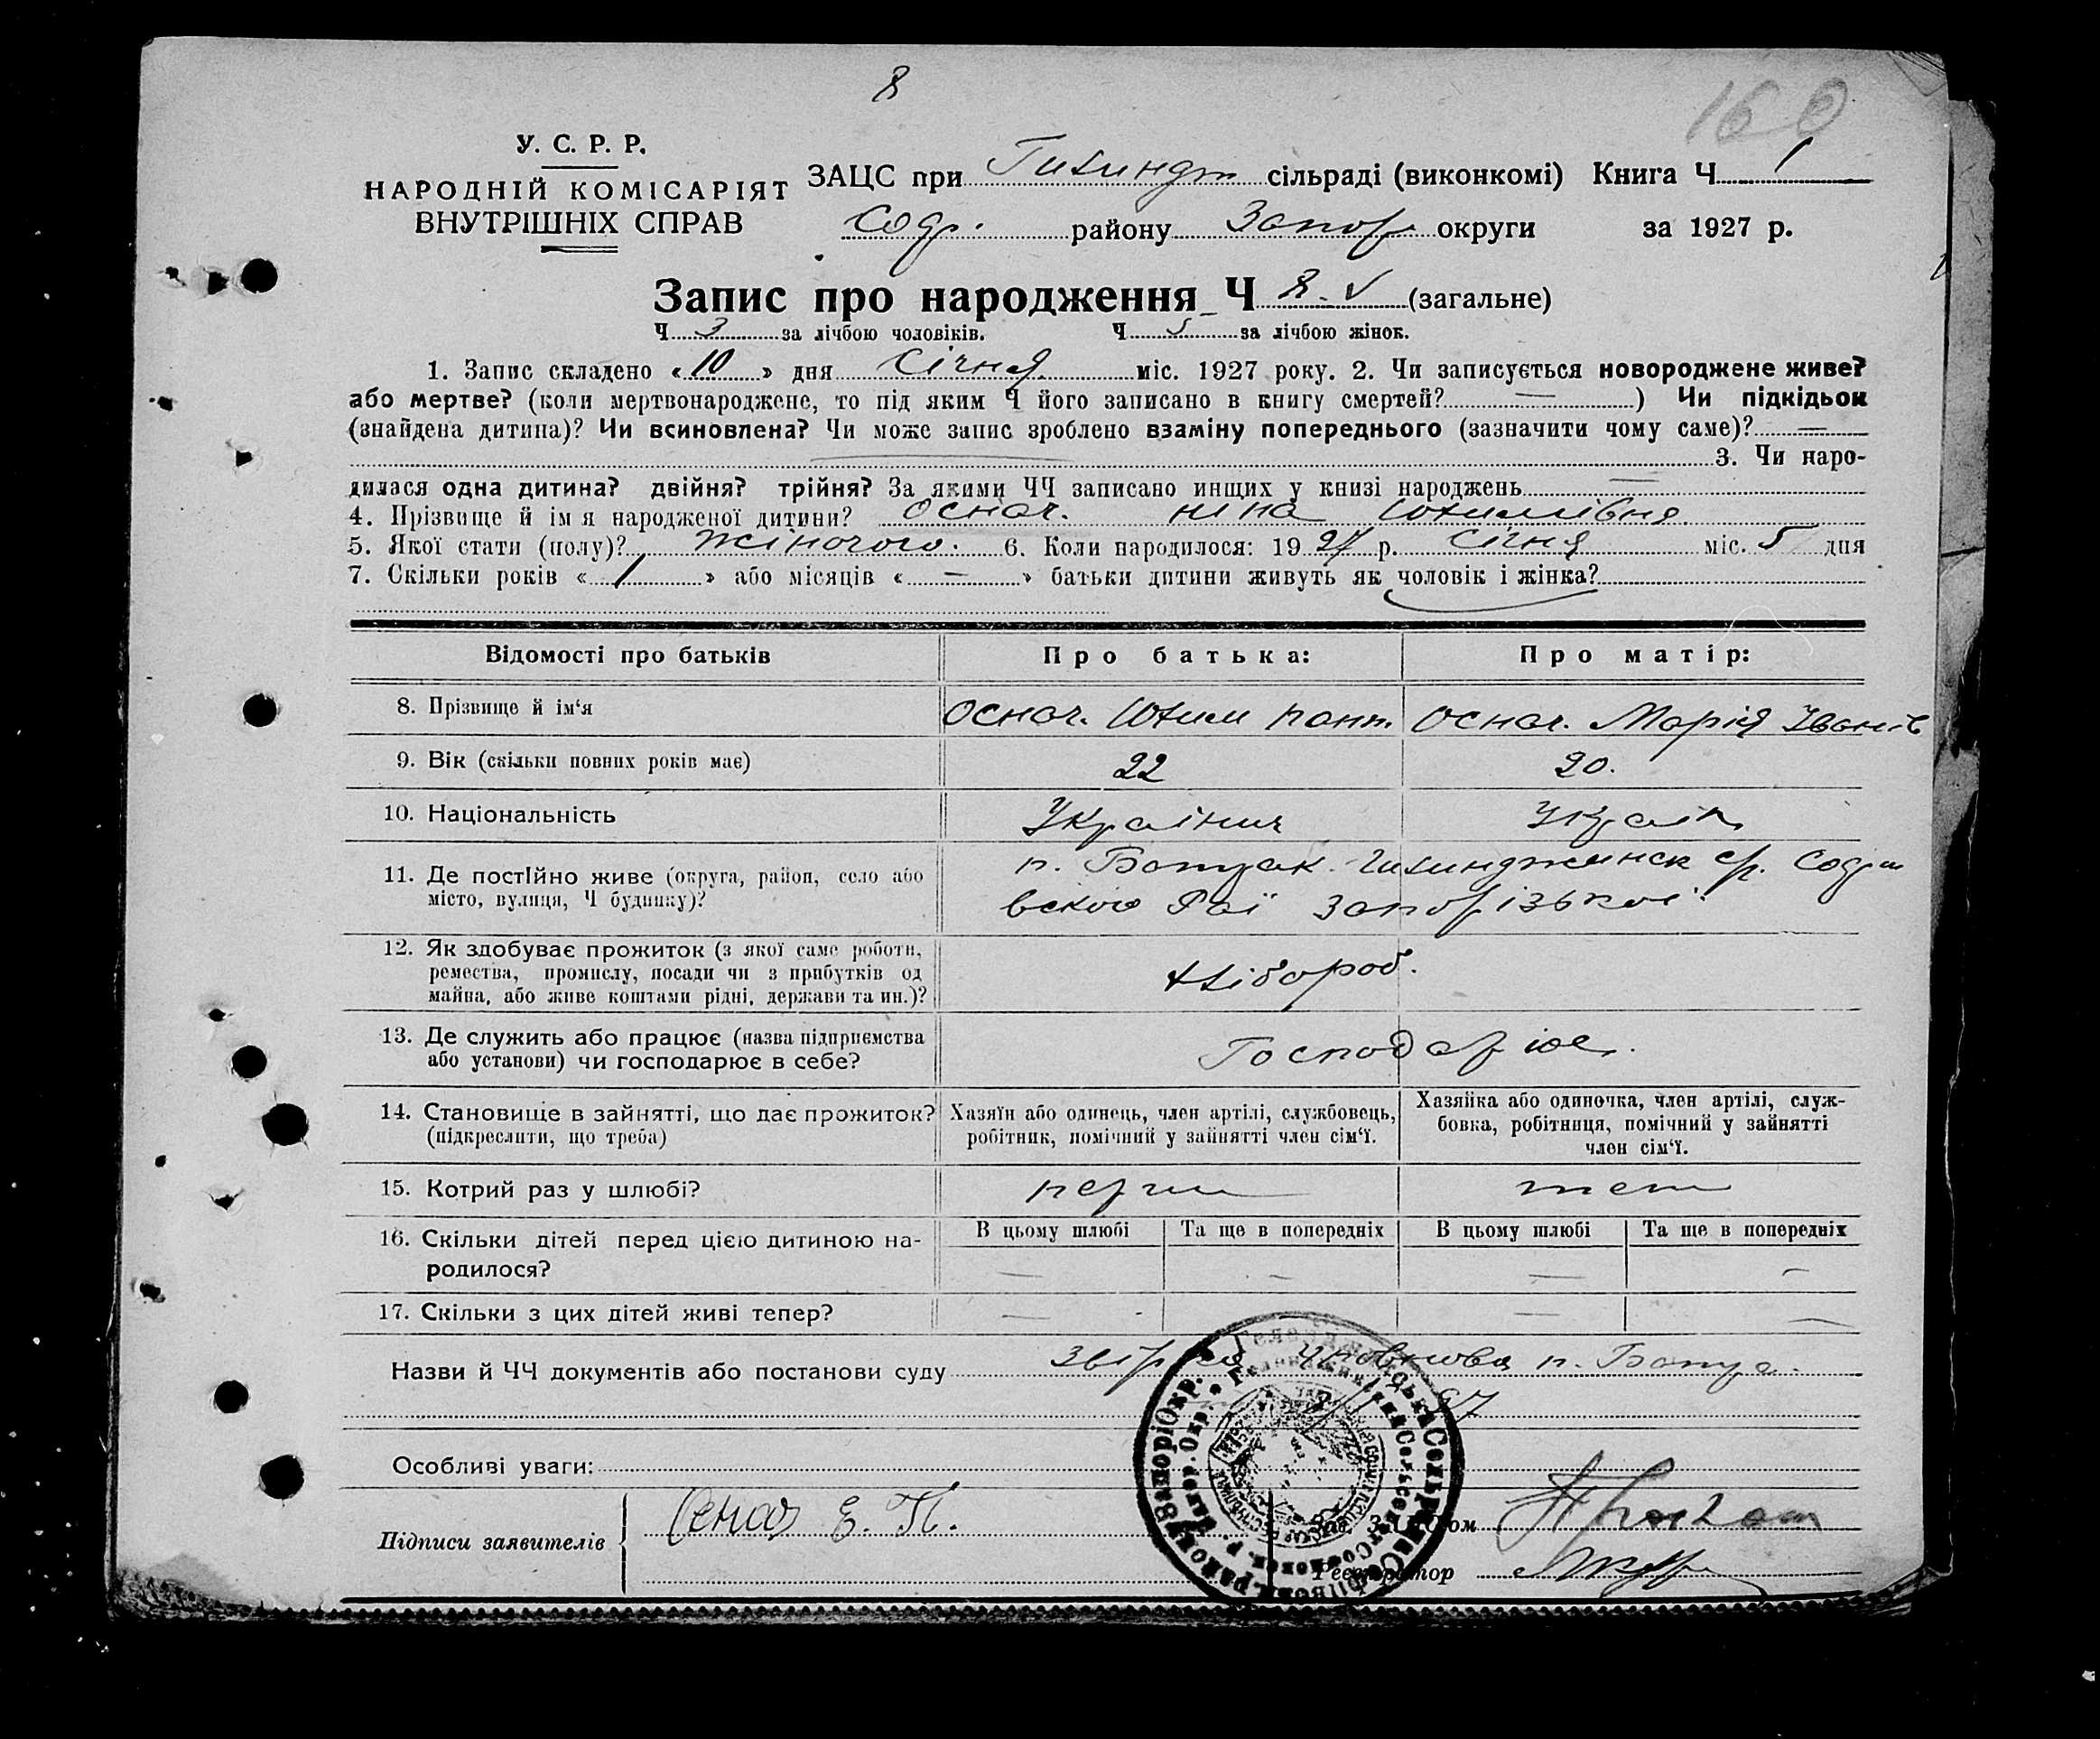 8
160
У. С. Р. Р.
НАРОДНІЙ КОМІСАРІЯТ
ВНУТРІШНІХ СПРАВ
ЗАЦС при сільраді (виконкомі) Книга Ч 1
району Запор округи за 1927 р.
Запис про народження Ч 8 (загальне)
Ч 3 за лічбою чоловіків. Ч 5 за лічбою жінок.
1. Запис складено «10» дня Січня міс. 1927 року. 2. Чи записується новороджене живе?
або мертве? (коли мертвонароджене, то під яким Ч його записано в книгу смертей? —) Чи підкідьок
(знайдена дитина)? Чи всиновлена? Чи може запис зроблено взаміну попереднього (зазначити чому саме)? —
3. Чи наро-
дилася одна дитина? двійня? трійня? За якими ЧЧ записано инщих у книзі народжень —
4. Прізвище й ім я народженої дитини? Оснач. Ніна Юхимівна
5. Якої стати (полу)? жіночого. 6. Коли народилося: 1927 р. Січня міс. 5 дня
7. Скільки років «1» або місяців «—» батьки дитини живуть як чоловік і жінка?
Відомості про батьків Про батька: Про матір:
8. Прізвище й ім‘я Оснач. Юхим Пант. Оснач. Марія Іванів
9. Вік (скільки повних років має) 22 20.
10. Національність Українич Україн
11. Де постійно живе (округа, район, село або
місто, вулиця, Ч будинку)?
12. Як здобуває прожиток (з якої саме роботи,
ремества, промислу, посади чи з прибутків од
майна, або живе коштами рідні, держави та ин.)?
Хлібороб.
13. Де служить або працює (назва підприємства
або установи) чи господарює в себе?
Господарює.
14. Становище в зайнятті, що дає прожиток?
(підкреслити, що треба)
Хазяїн або одинець, член артілі, службовець,
робітник, помічний у зайнятті член сім‘ї.
Хазяйка або одиночка, член артілі, служ-
бовка, робітниця, помічний у зайнятті
член сім‘ї.
15. Котрий раз у шлюбі? перши теж
16. Скільки дітей перед цією дитиною на-
родилося?
В цьому шлюбі Та ще в попередніх В цьому шлюбі Та ще в попередніх
— — — —
17. Скільки з цих дітей живі тепер? — - — —
Назви й ЧЧ документів або постанови суду
27
Особливі уваги:
Підписи заявителів Оснач Е. П.
Зав. ЗАЦС'ом
Реєстратор